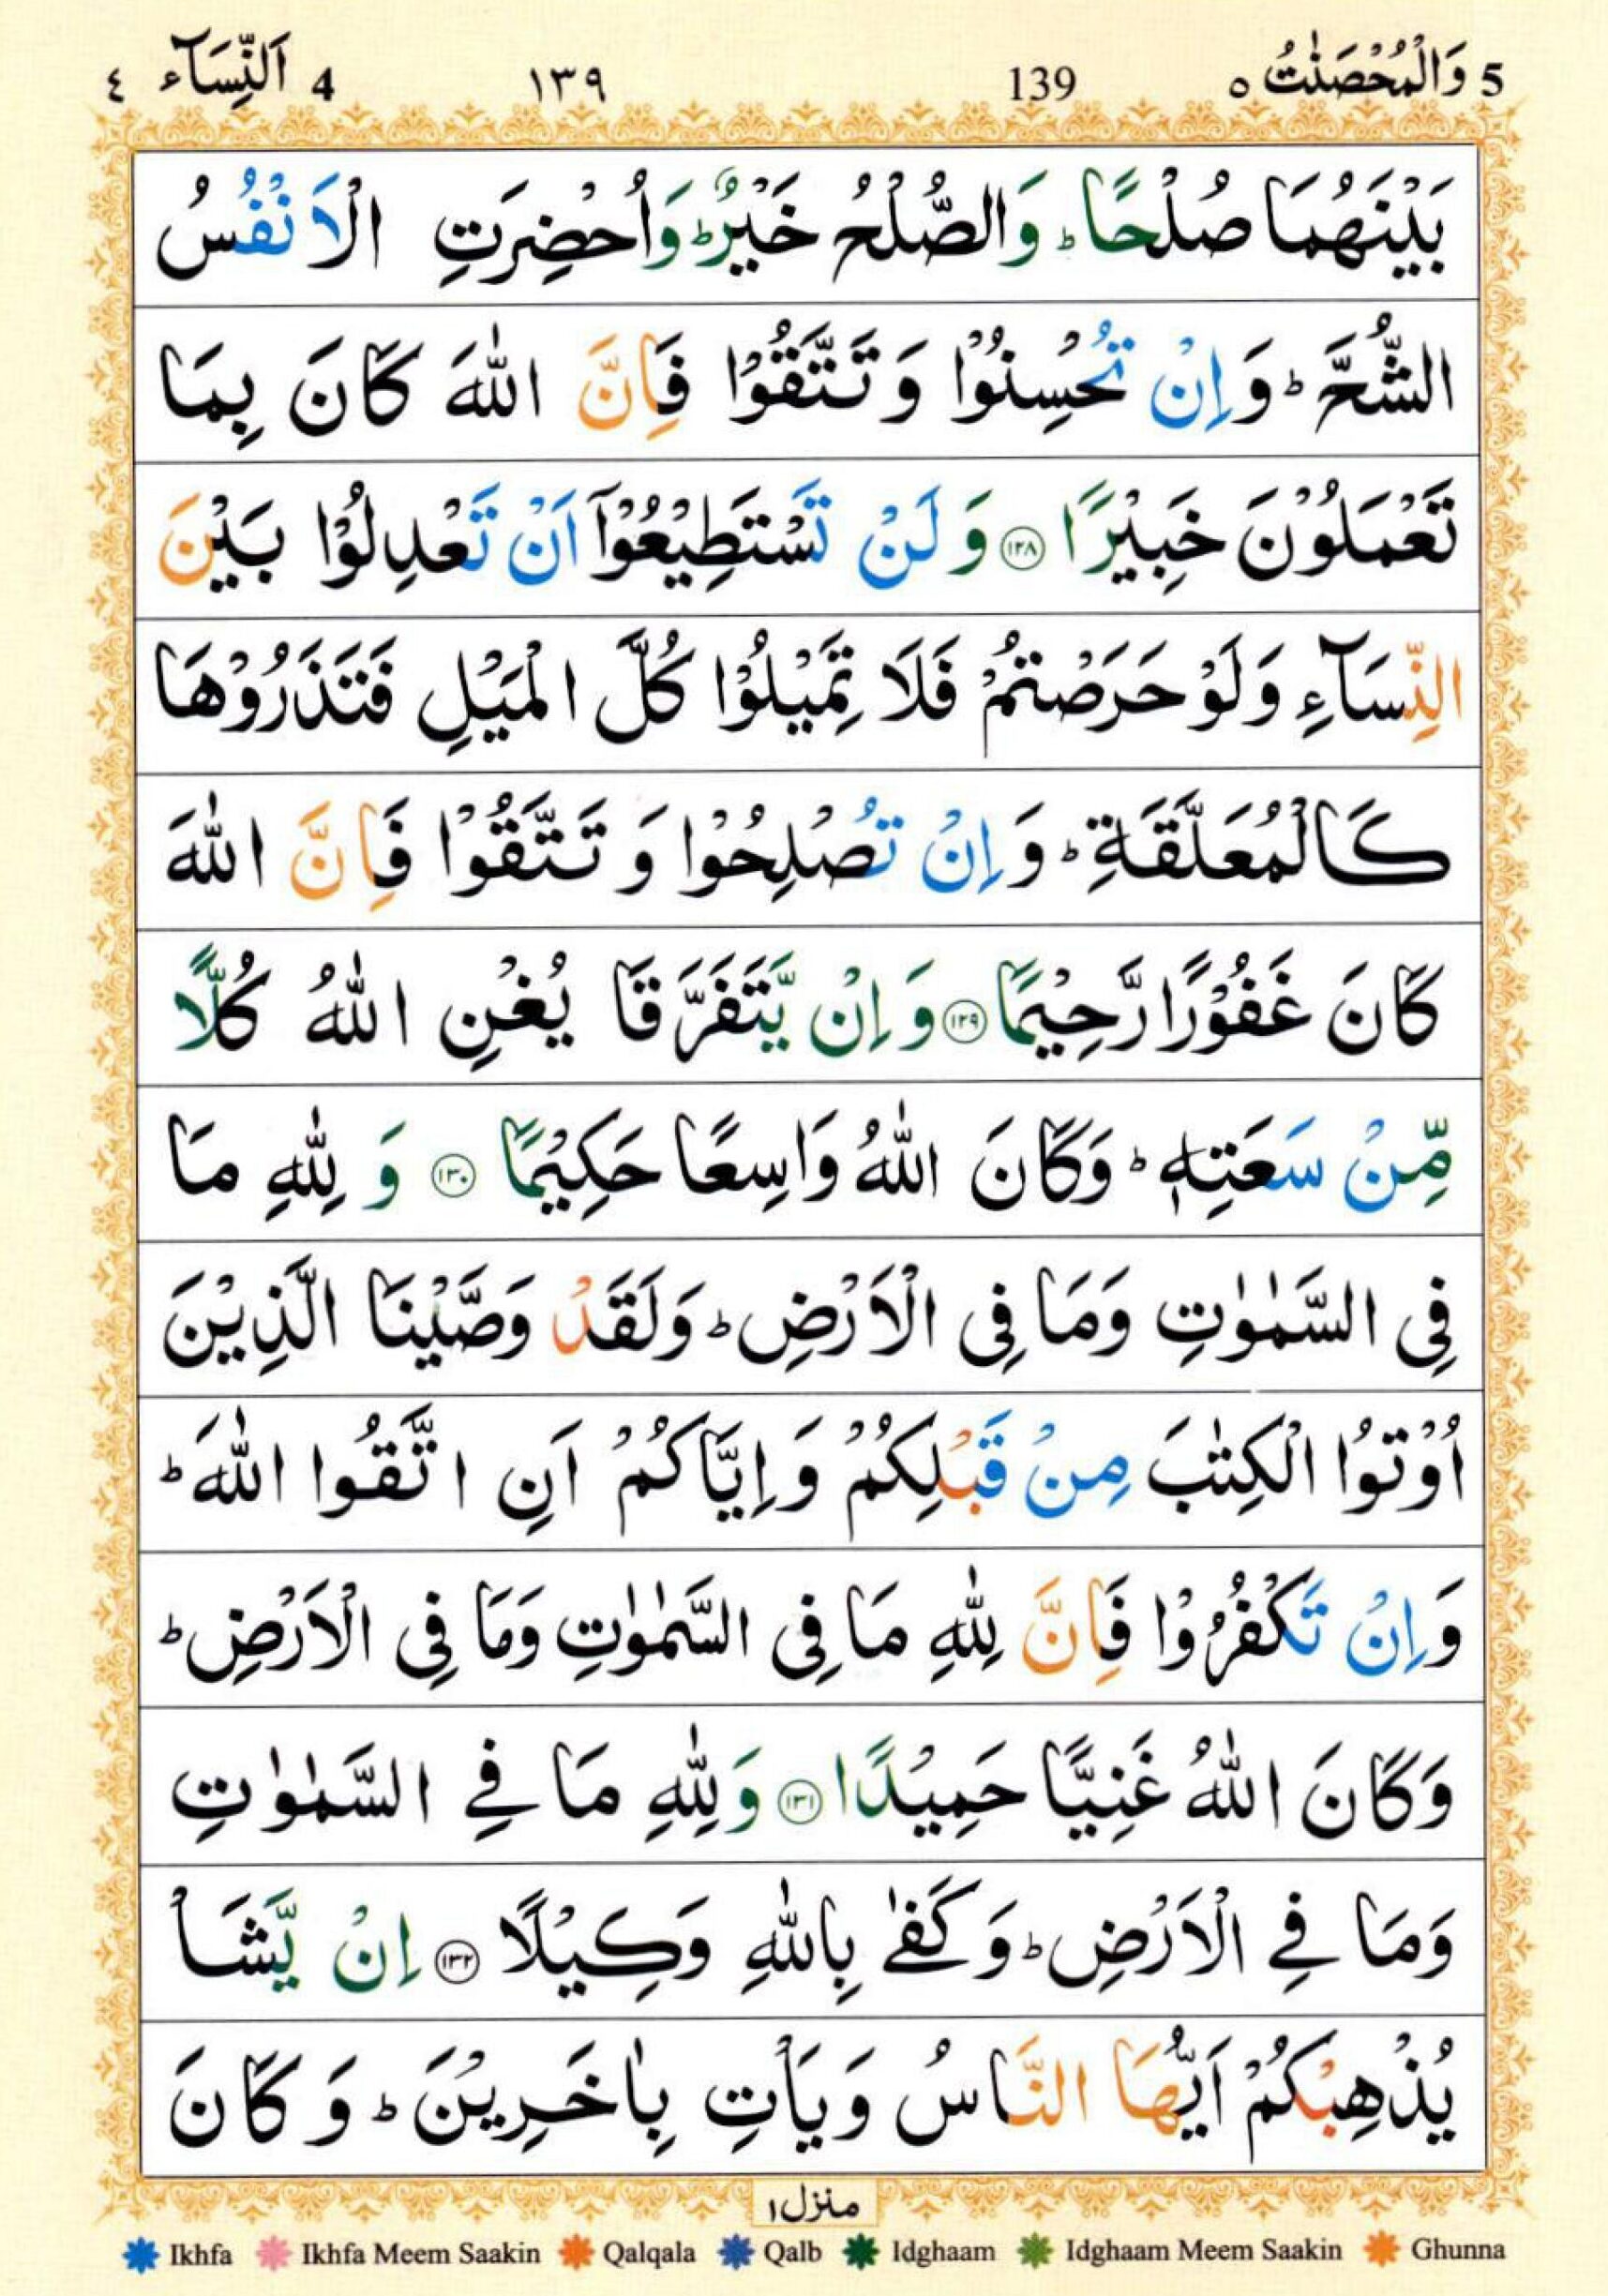 5 وَالْمُحْصَنٰتُ ٥ 139 ١٣٩ 4 اَلنِّسَآء ٤
بَيْنَهُمَا صُلْحًا ؕ وَالصُّلْحُ خَيْرٌ ؕ وَاُحْضِرَتِ الْاَنْفُسُ
الشُّحَّ ؕ وَاِنْ تُحْسِنُوْا وَتَتَّقُوْا فَاِنَّ اللّٰهَ كَانَ بِمَا
تَعْمَلُوْنَ خَبِيْرًا ١٢٨ وَلَنْ تَسْتَطِيْعُوْۤا اَنْ تَعْدِلُوْا بَيْنَ
النِّسَآءِ وَلَوْ حَرَصْتُمْ فَلَا تَمِيْلُوْا كُلَّ الْمَيْلِ فَتَذَرُوْهَا
كَالْمُعَلَّقَةِ ؕ وَاِنْ تُصْلِحُوْا وَتَتَّقُوْا فَاِنَّ اللّٰهَ
كَانَ غَفُوْرًا رَّحِيْمًا ١٢٩ وَاِنْ يَّتَفَرَّقَا يُغْنِ اللّٰهُ كُلًّا
مِّنْ سَعَتِهٖ ؕ وَكَانَ اللّٰهُ وَاسِعًا حَكِيْمًا ١٣٠ وَلِلّٰهِ مَا
فِى السَّمٰوٰتِ وَمَا فِى الْاَرْضِ ؕ وَلَقَدْ وَصَّيْنَا الَّذِيْنَ
اُوْتُوا الْكِتٰبَ مِنْ قَبْلِكُمْ وَاِيَّاكُمْ اَنِ اتَّقُوا اللّٰهَ ؕ
وَاِنْ تَكْفُرُوْا فَاِنَّ لِلّٰهِ مَا فِى السَّمٰوٰتِ وَمَا فِى الْاَرْضِ ؕ
وَكَانَ اللّٰهُ غَنِيًّا حَمِيْدًا ١٣١ وَلِلّٰهِ مَا فِے السَّمٰوٰتِ
وَمَا فِے الْاَرْضِ ؕ وَكَفٰى بِاللّٰهِ وَكِيْلًا ١٣٢ اِنْ يَّشَاْ
يُذْهِبْكُمْ اَيُّهَا النَّاسُ وَيَاْتِ بِاٰخَرِيْنَ ؕ وَكَانَ
منزل ١
Ikhfa Ikhfa Meem Saakin Qalqala Qalb Idghaam Idghaam Meem Saakin Ghunna